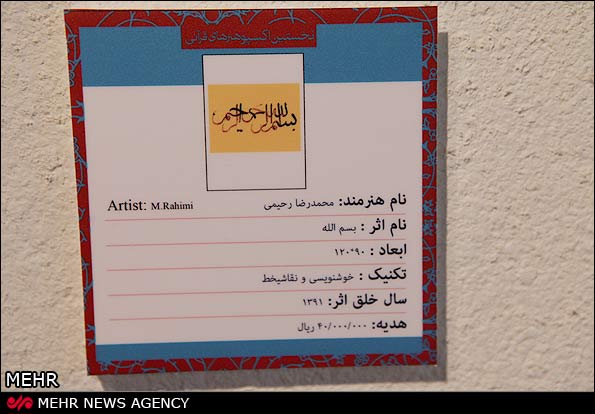 نخستین اکسپو هنرهای قرآنی
بسم الله الرحمن الرحیم
نام هنرمند: محمدرضا رحیمی Artist: M.Rahimi
نام اثر : بسم الله
ابعاد : ۹۰*۱۲۰
تکنیک : خوشنویسی و نقاشیخط
سال خلق اثر: ۱۳۹۱
هدیه: ۴۰/۰۰۰/۰۰۰ ریال
MEHR
MEHR NEWS AGENCY